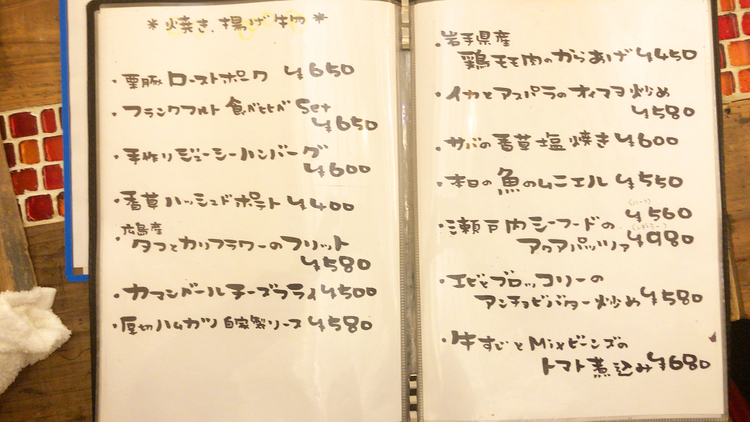 *焼き、揚げ物*
・栗豚ローストポーク ¥650
・フランクフルト食べヒヒベSet
¥650
・手作りジューシーハンバーグ
¥600
・香草ハッシュドポテト ¥400
広島産
・タコとカリフラワーのフリット
¥580
・カマンベールチーズフライ ¥500
・厚切ハムカツ自家製ソース ¥580
・岩手県産
鶏モモ肉のからあげ ¥450
・イカとアスパラのオイマヨ炒め
¥580
・サバの香草塩焼き ¥600
・本日の魚のムニエル ¥550
・瀬戸内シーフードの ¥560
アクアパッツァ ¥980
・エビとブロッコリーの
アンチョビバター炒め ¥580
・牛すじとMixビーンズの
トマト煮込み ¥680